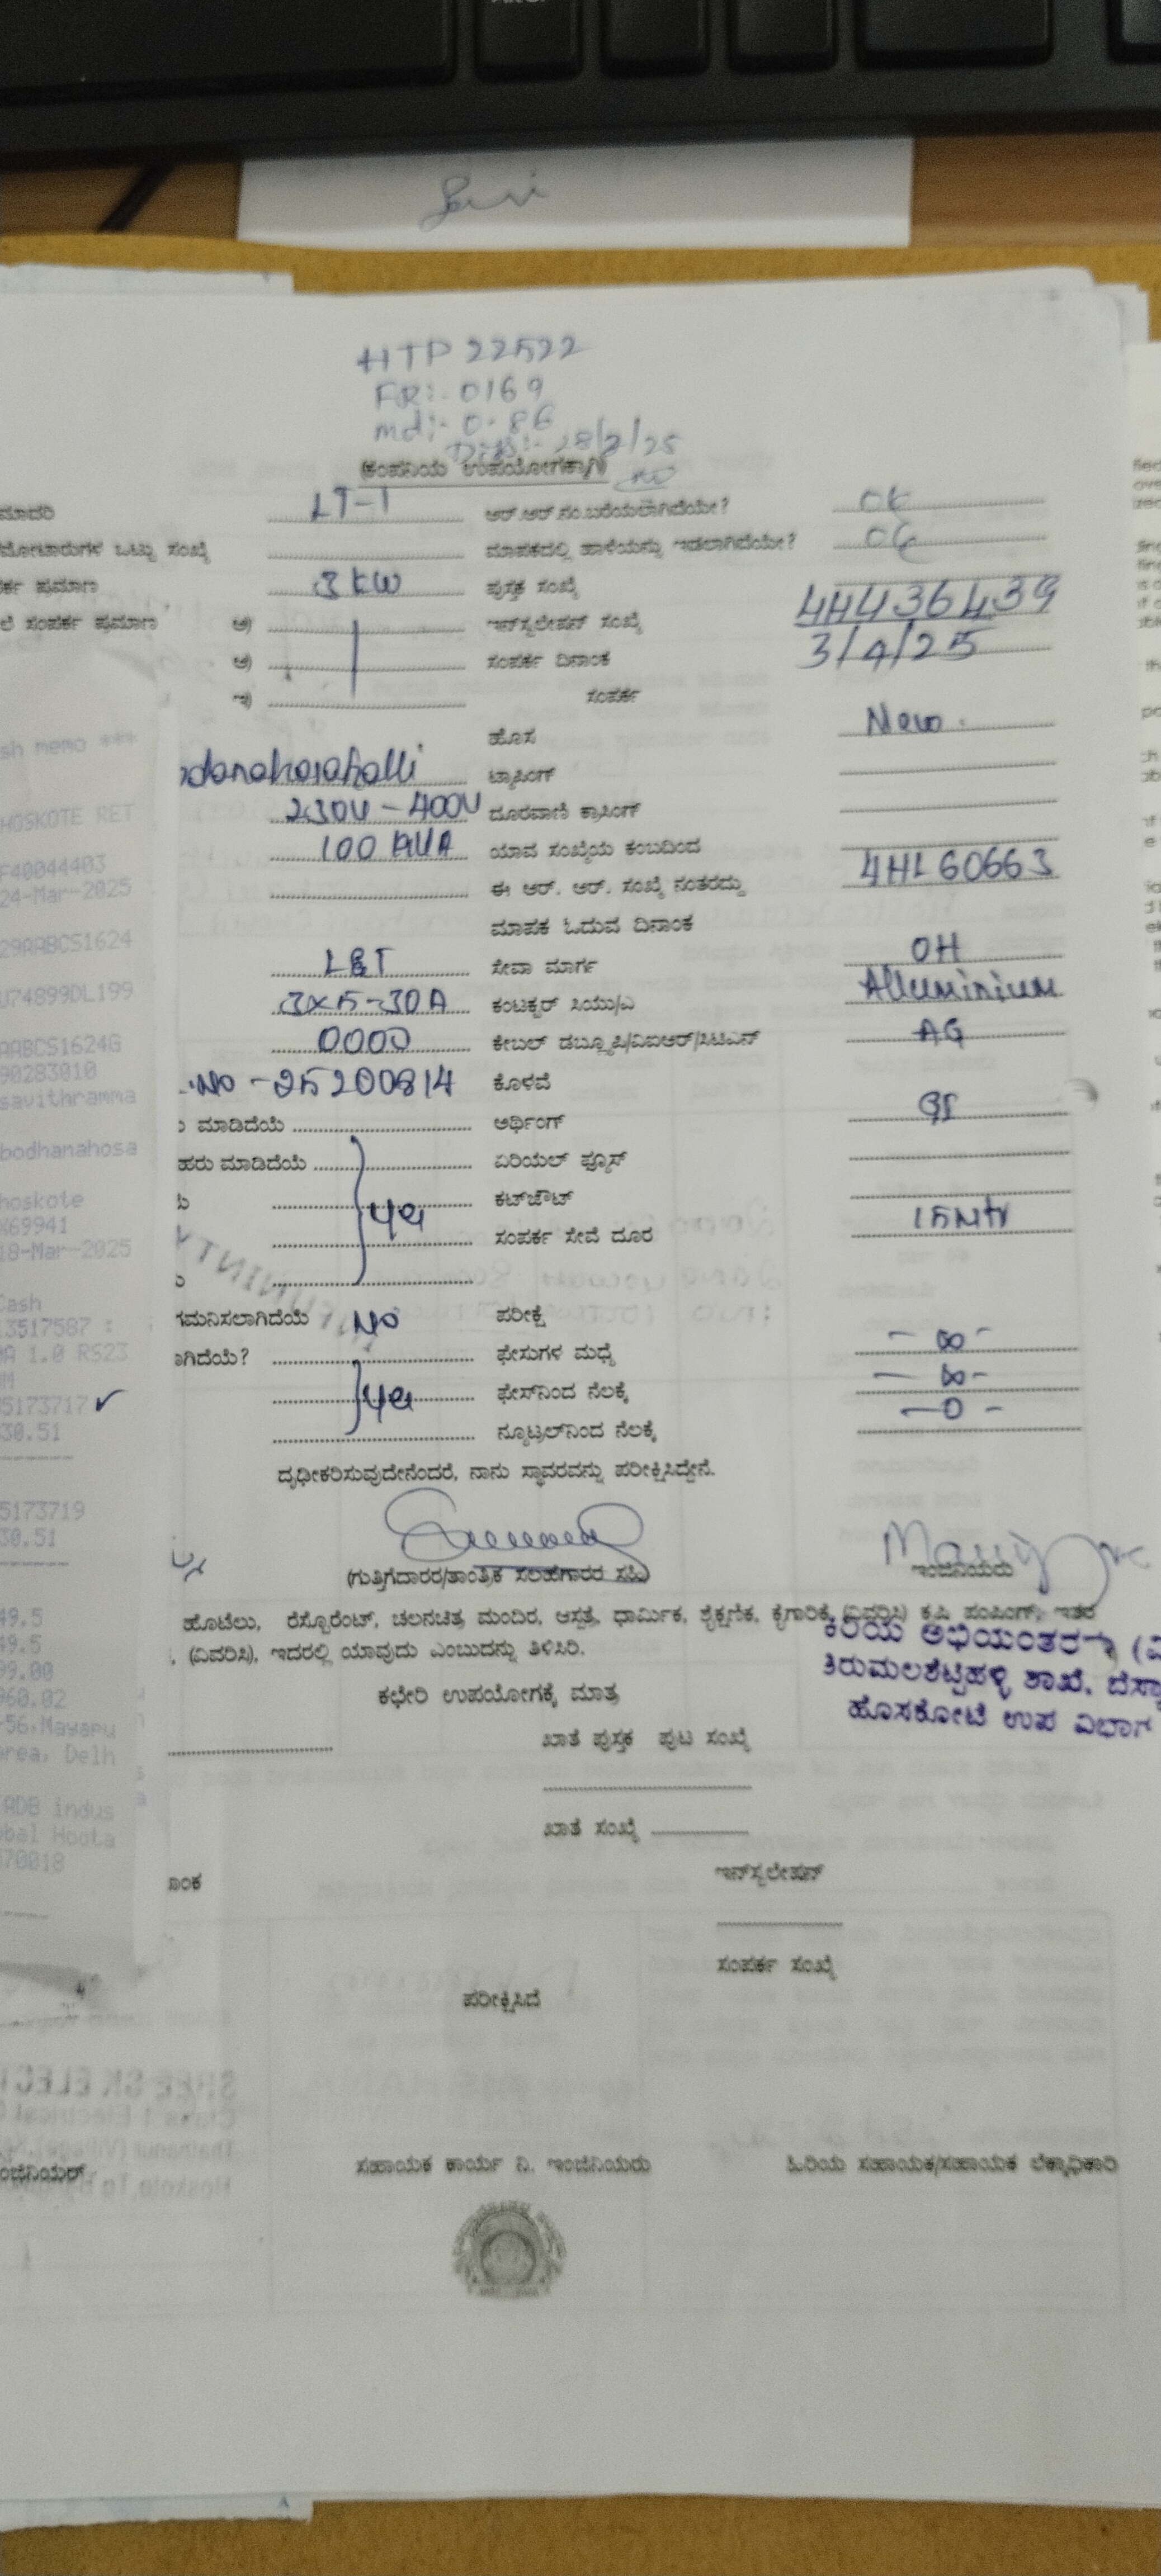 HTP 22522
FR:- 0169
md:- 0.86
28/2/25
(ಕಂಪನಿಯ ಉಪಯೋಗಕ್ಕಾಗಿ)
ಮಾದರಿ LT-1 ಆರ್.ಆರ್.ನಂ.ಬರೆಯಲಾಗಿದೆಯೇ? OK
ಮೋಟಾರುಗಳ ಒಟ್ಟು ಸಂಖ್ಯೆ ಮಾಪಕದಲ್ಲಿ ಹಾಳೆಯನ್ನು ಇಡಲಾಗಿದೆಯೇ?
ಪ್ರಮಾಣ 3 KW ಪುಸ್ತಕ ಸಂಖ್ಯೆ
ಸಂಪರ್ಕ ಪ್ರಮಾಣ ಅ) ಇನ್‌ಸ್ಟಲೇಷನ್ ಸಂಖ್ಯೆ 4H436439
ಆ) ಸಂಪರ್ಕ ದಿನಾಂಕ 3/4/25
ಇ) ಸಂಪರ್ಕ
ಹೊಸ New
odanahosahalli ಟ್ಯಾಪಿಂಗ್
230V - 400V ದೂರವಾಣಿ ಕ್ರಾಸಿಂಗ್
100 KVA ಯಾವ ಸಂಖ್ಯೆಯ ಕಂಬದಿಂದ
ಈ ಆರ್. ಆರ್. ಸಂಖ್ಯೆ ನಂತರದ್ದು 4HL60663
ಮಾಪಕ ಓದುವ ದಿನಾಂಕ
L&T ಸೇವಾ ಮಾರ್ಗ OH
3x5-30A ಕಂಟಕ್ಟರ್ ಸಿಯು/ಎ Alluminium
0000 ಕೇಬಲ್ ಡಬ್ಲ್ಯೂಪಿ/ವಿಐಆರ್/ಸಿಟಿಎನ್ AG
No - 25200814 ಕೊಳವೆ
ಮಾಡಿದೆಯೆ ಅರ್ಥಿಂಗ್ GI
ಹರು ಮಾಡಿದೆಯೆ ಏರಿಯಲ್ ಫ್ಯೂಸ್
ಕಟ್‌ಔಟ್
ಸಂಪರ್ಕ ಸೇವೆ ದೂರ 15Mtr
ಗಮನಿಸಲಾಗಿದೆಯೆ No ಪರೀಕ್ಷೆ
ಾಗಿದೆಯೆ? ಫೇಸುಗಳ ಮಧ್ಯೆ - ∞ -
ಫೇಸ್‌ನಿಂದ ನೆಲಕ್ಕೆ - ∞ -
ನ್ಯೂಟ್ರಲ್‌ನಿಂದ ನೆಲಕ್ಕೆ - 0 -
ದೃಢೀಕರಿಸುವುದೇನೆಂದರೆ, ನಾನು ಸ್ಥಾವರವನ್ನು ಪರೀಕ್ಷಿಸಿದ್ದೇನೆ.
(ಗುತ್ತಿಗೆದಾರರ/ತಾಂತ್ರಿಕ ಸಲಹೆಗಾರರ ಸಹಿ) ಇಂಜಿನಿಯರು
ಹೊಟೆಲು, ರೆಸ್ಟೋರೆಂಟ್, ಚಲನಚಿತ್ರ ಮಂದಿರ, ಆಸ್ಪತ್ರೆ, ಧಾರ್ಮಿಕ, ಶೈಕ್ಷಣಿಕ, ಕೈಗಾರಿಕೆ, (ವಿವರಿಸಿ) ಕೃಷಿ ಪಂಪಿಂಗ್, ಇತರ
, (ವಿವರಿಸಿ), ಇದರಲ್ಲಿ ಯಾವುದು ಎಂಬುದನ್ನು ತಿಳಿಸಿರಿ.
ಕಿರಿಯ ಅಭಿಯಂತರ
ತಿರುಮಲಶೆಟ್ಟಿಹಳ್ಳಿ ಶಾಖೆ, ಬೆಸ್ಕಾ
ಹೊಸಕೋಟೆ ಉಪ ವಿಭಾಗ
ಕಛೇರಿ ಉಪಯೋಗಕ್ಕೆ ಮಾತ್ರ
ಖಾತೆ ಪುಸ್ತಕ ಪುಟ ಸಂಖ್ಯೆ
ಖಾತೆ ಸಂಖ್ಯೆ
ಇನ್‌ಸ್ಟಲೇಷನ್
ಸಂಪರ್ಕ ಸಂಖ್ಯೆ
ಪರೀಕ್ಷಿಸಿದೆ
ಂಜಿನಿಯರ್. ಸಹಾಯಕ ಕಾರ್ಯ ನಿ. ಇಂಜಿನಿಯರು ಹಿರಿಯ ಸಹಾಯಕ/ಸಹಾಯಕ ಲೆಕ್ಕಾಧಿಕಾರಿ
sh memo ***
HOSKOTE RET
F40044403
24-Mar-2025
29AABCS1624
U74899DL199
AABCS1624G
90283010
savithramma
bodhanahosa
hoskote
X69941
18-Mar-2025
Cash
13517587 :
0A 1.0 RS23
5173717
30.51
5173719
30.51
49.5
49.5
99.00
960.02
-56,Mayapu
area, Delh
IADB indus
obal Hoota
570018